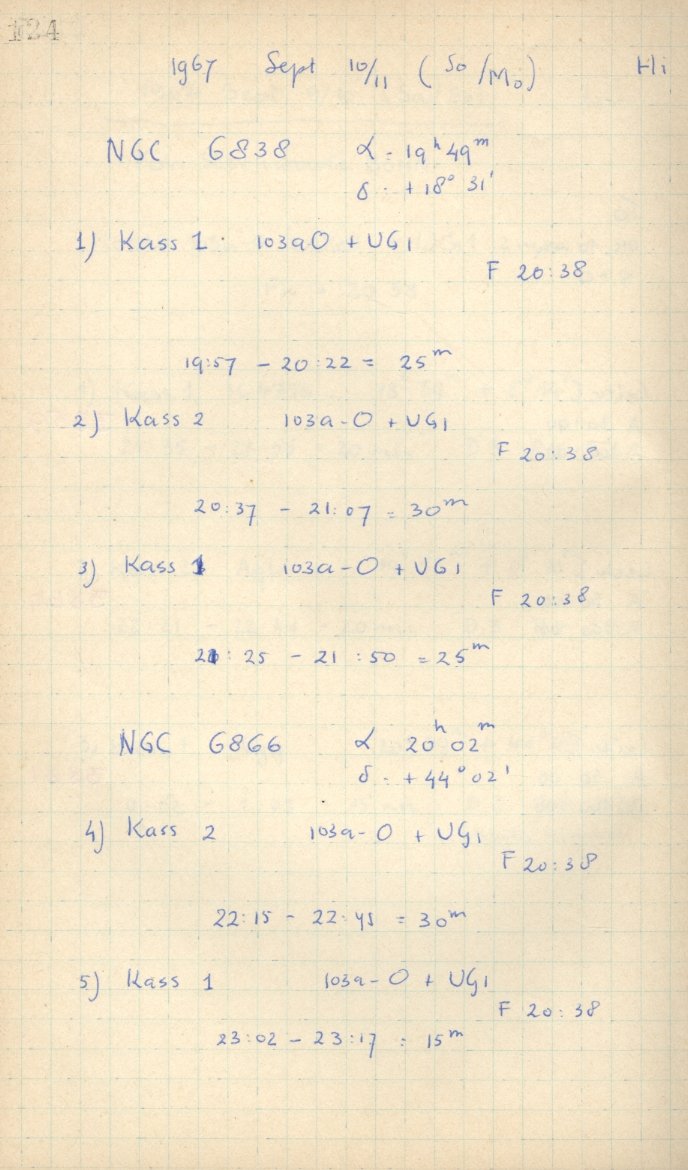 124
1967 Sept 10/11 (So/Mo) Hi
NGC 6838 α = 19ʰ 49ᵐ
δ = +18° 31'
1) Kass 1 103aO + UG1
F 20:38
19:57 – 20:22 = 25ᵐ
2) Kass 2 103a-O + UG1
F 20:38
20:37 – 21:07 = 30ᵐ
3) Kass 1 103a-O + UG1
F 20:38
21:25 – 21:50 = 25ᵐ
NGC 6866 α 20ʰ 02ᵐ
δ = +44° 02'
4) Kass 2 103a-O + UG1
F 20:38
22:15 – 22:45 = 30ᵐ
5) Kass 1 103a-O + UG1
F 20:38
23:02 – 23:17 = 15ᵐ